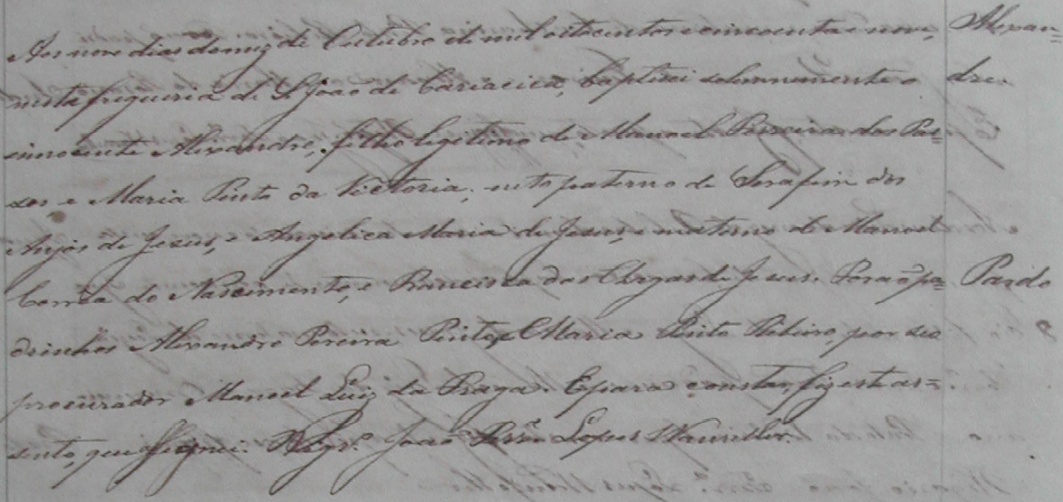 Aos nove dias do mez de Outubro de mil oitocentos e cincoenta e nove, Alexan=
nesta freguesia de S. João de Cariacica, baptisei solemnemente o dre.
innocente Alexandre, filho legitimo de Manoel Ferreira dos Pas=
sos e Maria Pinto da Victoria; neto paterno de Serafim dos
Anjos de Jesus, e Angelica Maria de Jesus, e materno de Manoel
Corrêa do Nascimento, e Francisca das Chagas de Jesus. Forão pa= Pardo
drinhos Alexandre Pereira Pinto, e Maria Pinto Ribeiro, por seo
procurador Manoel Luiz da Fraga. E para constar, fiz este as=
sento, que assignei. João Lopes